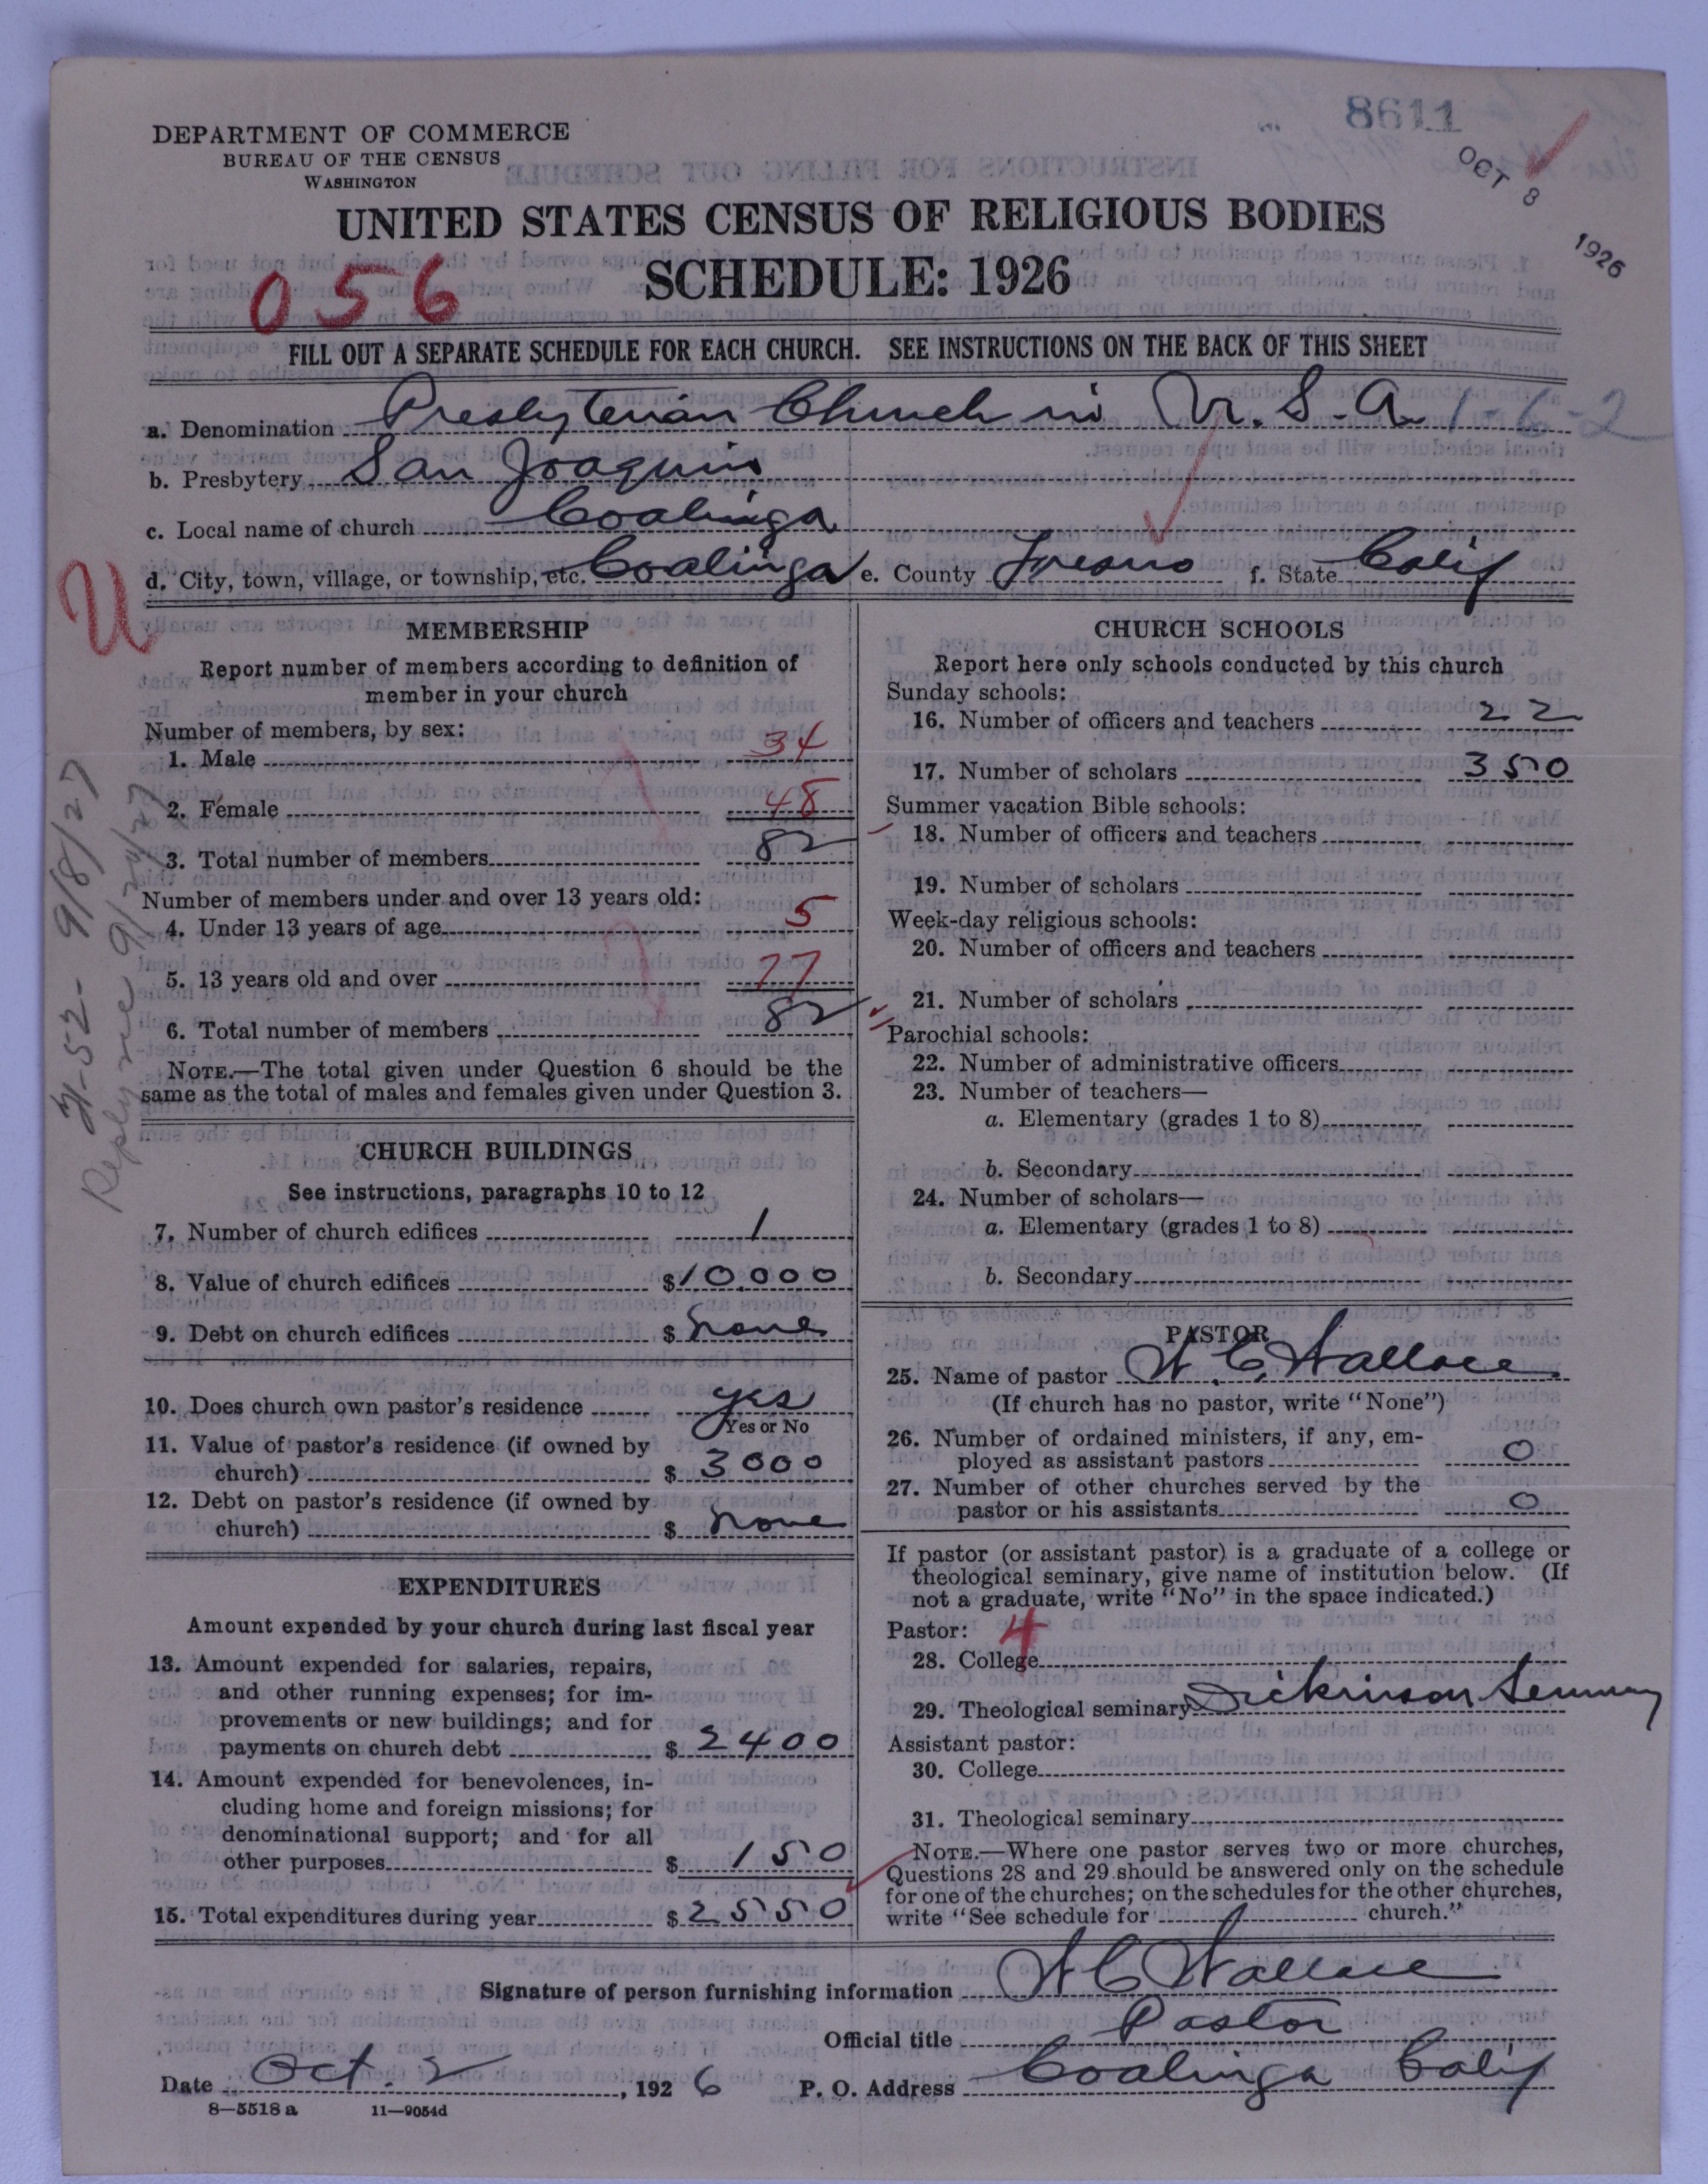 8611
OCT 8 1926
DEPARTMENT OF COMMERCE
BUREAU OF THE CENSUS
WASHINGTON
UNITED STATES CENSUS OF RELIGIOUS BODIES
SCHEDULE: 1926
056
FILL OUT A SEPARATE SCHEDULE FOR EACH CHURCH. SEE INSTRUCTIONS ON THE BACK OF THIS SHEET
a. Denomination Presbyterian Church in U. S. A. 1-6-2
b. Presbytery San Joaquin
c. Local name of church Coalinga
d. City, town, village, or township, etc. Coalinga e. County Fresno f. State Calif
U
MEMBERSHIP
Report number of members according to definition of
member in your church
Number of members, by sex:
1. Male 34
2. Female 48
3. Total number of members 82
Number of members under and over 13 years old:
4. Under 13 years of age 5
5. 13 years old and over 77
6. Total number of members 82
NOTE.—The total given under Question 6 should be the
same as the total of males and females given under Question 3.
9/8/27
Reply rec 9/24/27
CHURCH BUILDINGS
See instructions, paragraphs 10 to 12
7. Number of church edifices 1
8. Value of church edifices $10.000
9. Debt on church edifices $ none
10. Does church own pastor's residence yes
Yes or No
11. Value of pastor's residence (if owned by
church) $ 3000
12. Debt on pastor's residence (if owned by
church) $ none
EXPENDITURES
Amount expended by your church during last fiscal year
13. Amount expended for salaries, repairs,
and other running expenses; for im-
provements or new buildings; and for
payments on church debt $ 2400
14. Amount expended for benevolences, in-
cluding home and foreign missions; for
denominational support; and for all
other purposes $ 150
15. Total expenditures during year $ 2550
CHURCH SCHOOLS
Report here only schools conducted by this church
Sunday schools:
16. Number of officers and teachers 22
17. Number of scholars 350
Summer vacation Bible schools:
18. Number of officers and teachers
19. Number of scholars
Week-day religious schools:
20. Number of officers and teachers
21. Number of scholars
Parochial schools:
22. Number of administrative officers
23. Number of teachers—
a. Elementary (grades 1 to 8)
b. Secondary
24. Number of scholars—
a. Elementary (grades 1 to 8)
b. Secondary
PASTOR
25. Name of pastor W. C. Wallace
(If church has no pastor, write "None")
26. Number of ordained ministers, if any, em-
ployed as assistant pastors 0
27. Number of other churches served by the
pastor or his assistants 0
If pastor (or assistant pastor) is a graduate of a college or
theological seminary, give name of institution below. (If
not a graduate, write "No" in the space indicated.)
Pastor: 4
28. College
29. Theological seminary Dickinson Seminary
Assistant pastor:
30. College
31. Theological seminary
NOTE.—Where one pastor serves two or more churches,
Questions 28 and 29 should be answered only on the schedule
for one of the churches; on the schedules for the other churches,
write "See schedule for church."
Signature of person furnishing information W C Wallace
Official title Pastor
Date Oct. 2, 1926 P. O. Address Coalinga Calif
8—5518 a 11—9054d